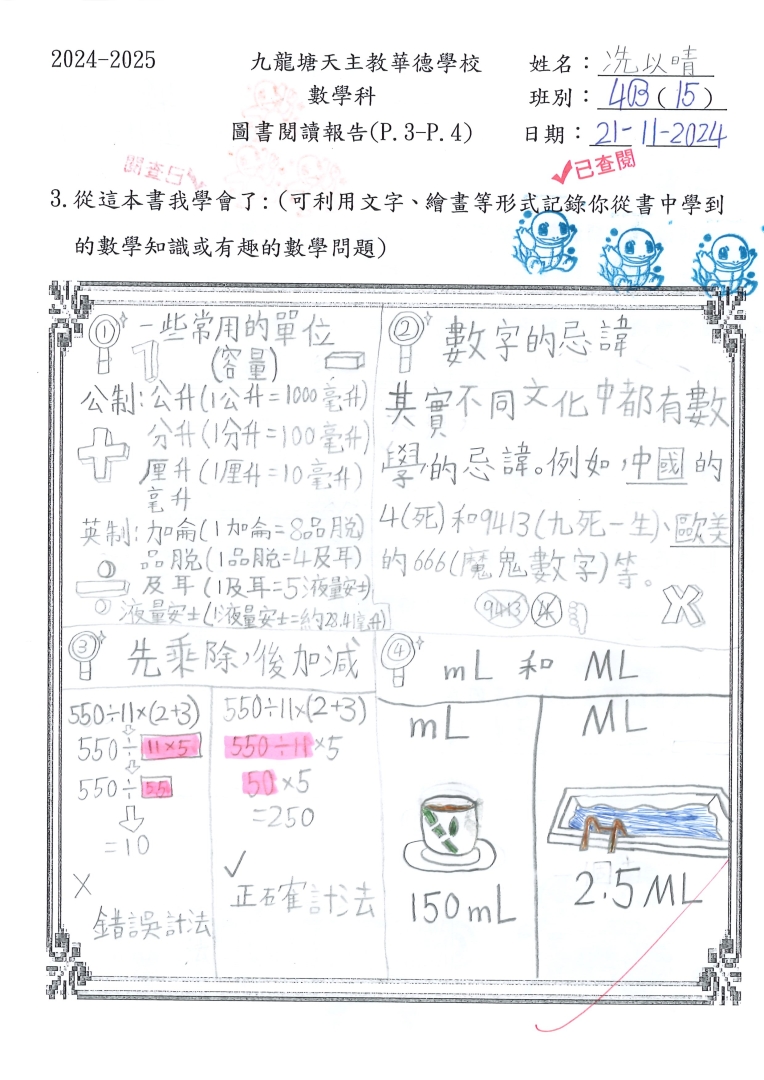 2024-2025
九龍塘天主教華德學校
數學科
圖書閱讀報告(P.3-P.4)
姓名：冼以晴
班別：4B(15)
日期：21-11-2024
已查閱
已查閱
3.從這本書我學會了:(可利用文字、繪畫等形式記錄你從書中學到
的數學知識或有趣的數學問題)
① 一些常用的單位
(容量)
公制:公升(1公升=1000毫升)
分升(1分升=100毫升)
厘升(1厘升=10毫升)
毫升
英制:加侖(1加侖=8品脫)
品脫(1品脫=4及耳)
及耳(1及耳=5液量安士)
液量安士(1液量安士=約28.41毫升)
② 數字的忌諱
其實不同文化中都有數
學的忌諱。例如,中國的
4(死)和9413(九死一生)、歐美
的666(魔鬼數字)等。
9413
③ 先乘除,後加減
550÷11×(2+3)
550÷11×5
550÷55
=10
錯誤計法
550÷11×(2+3)
550÷11×5
50×5
=250
正確計法
④ mL 和 ML
mL
150mL
ML
2.5ML